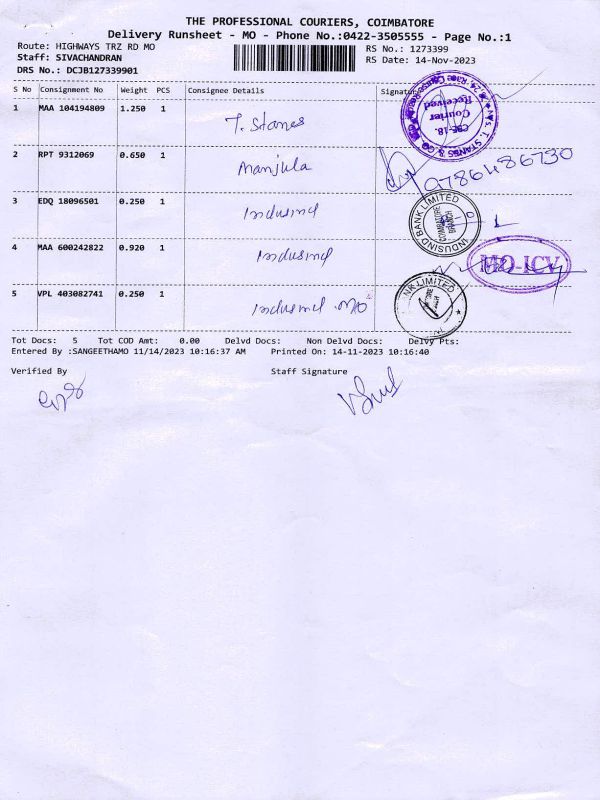 THE PROFESSIONAL COURIERS, COIMBATORE
Delivery Runsheet - MO - Phone No.:0422-3505555 - Page No.:1
Route: HIGHWAYS TRZ RD MO
RS No.: 1273399
Staff: SIVACHANDRAN
RS Date: 14-Nov-2023
DRS No.: DCJB127339901
S No Consignment No Weight PCS Consignee Details Signature
1 MAA 104194809 1.250 1 T. Stanes
CBE-18.
Courier
Received
2 RPT 9312069 0.650 1 Manjula
9786486730
3 EDQ 18096501 0.250 1 Indusind
INDUSIND BANK LIMITED
COIMBATORE
BRANCH
4 MAA 600242822 0.920 1 Indusind
MO-ICV
5 VPL 403082741 0.250 1 Indusind MO
BANK LIMITED
Tot Docs: 5 Tot COD Amt: 0.00 Delvd Docs: Non Delvd Docs: Delvy Pts:
Entered By :SANGEETHAMO 11/14/2023 10:16:37 AM Printed On: 14-11-2023 10:16:40
Verified By Staff Signature